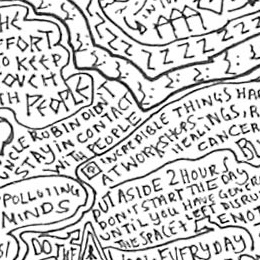 THE
EFFORT
TO KEEP
TOUCH
WITH PEOPLE
IN THI
ZZZZ ZZZZ
ROBIN DIDN'T
STAY IN CONTACT
WITH PEOPLE
INCREDIBLE THINGS HA
AT WORKSHOPS-INGS,
HEALINGS, R
CANCER
BU
POLLUTING
MINDS
PUT ASIDE 2 HOUR
DON'T START THE DAY
UNTIL YOU HAVE GENER
THE SPACE & LEFT DISRU
ENOT
DO THE
EVERYDAY